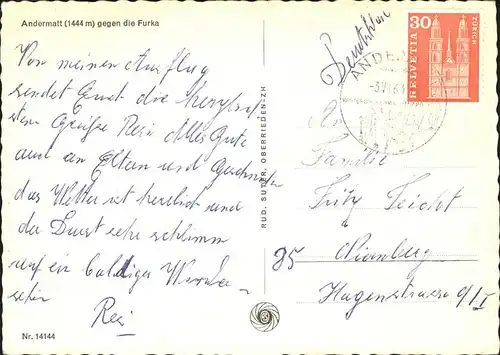 Andermatt (1444 m) gegen die Furka
Von meinen Ausflug
sendet Euch die herzlich
sten Grüße Resi Alles Gute
auch an Eltern und Geschwister
das Wetter ist herrlich und
der Durst sehr schlimm
auf ein baldiges Wieder
sehn
Resi
Nr. 14144
RUD. SUTER, OBERRIEDEN-ZH
Deutschland
ANDE
HELVETIA
30
ZÜRICH
An
Familie
Fritz Leicht
85 Nürnberg
Hagenstrasse 9/I